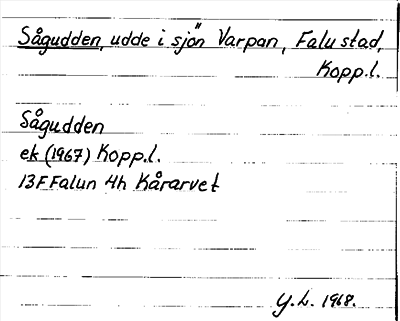 Sågudden, udde i sjön Varpan, Falu stad,
Kopp.l.
Sågudden
ek (1967) Kopp.l.
13F Falun 4h Kårarvet
Y.L. 1968.